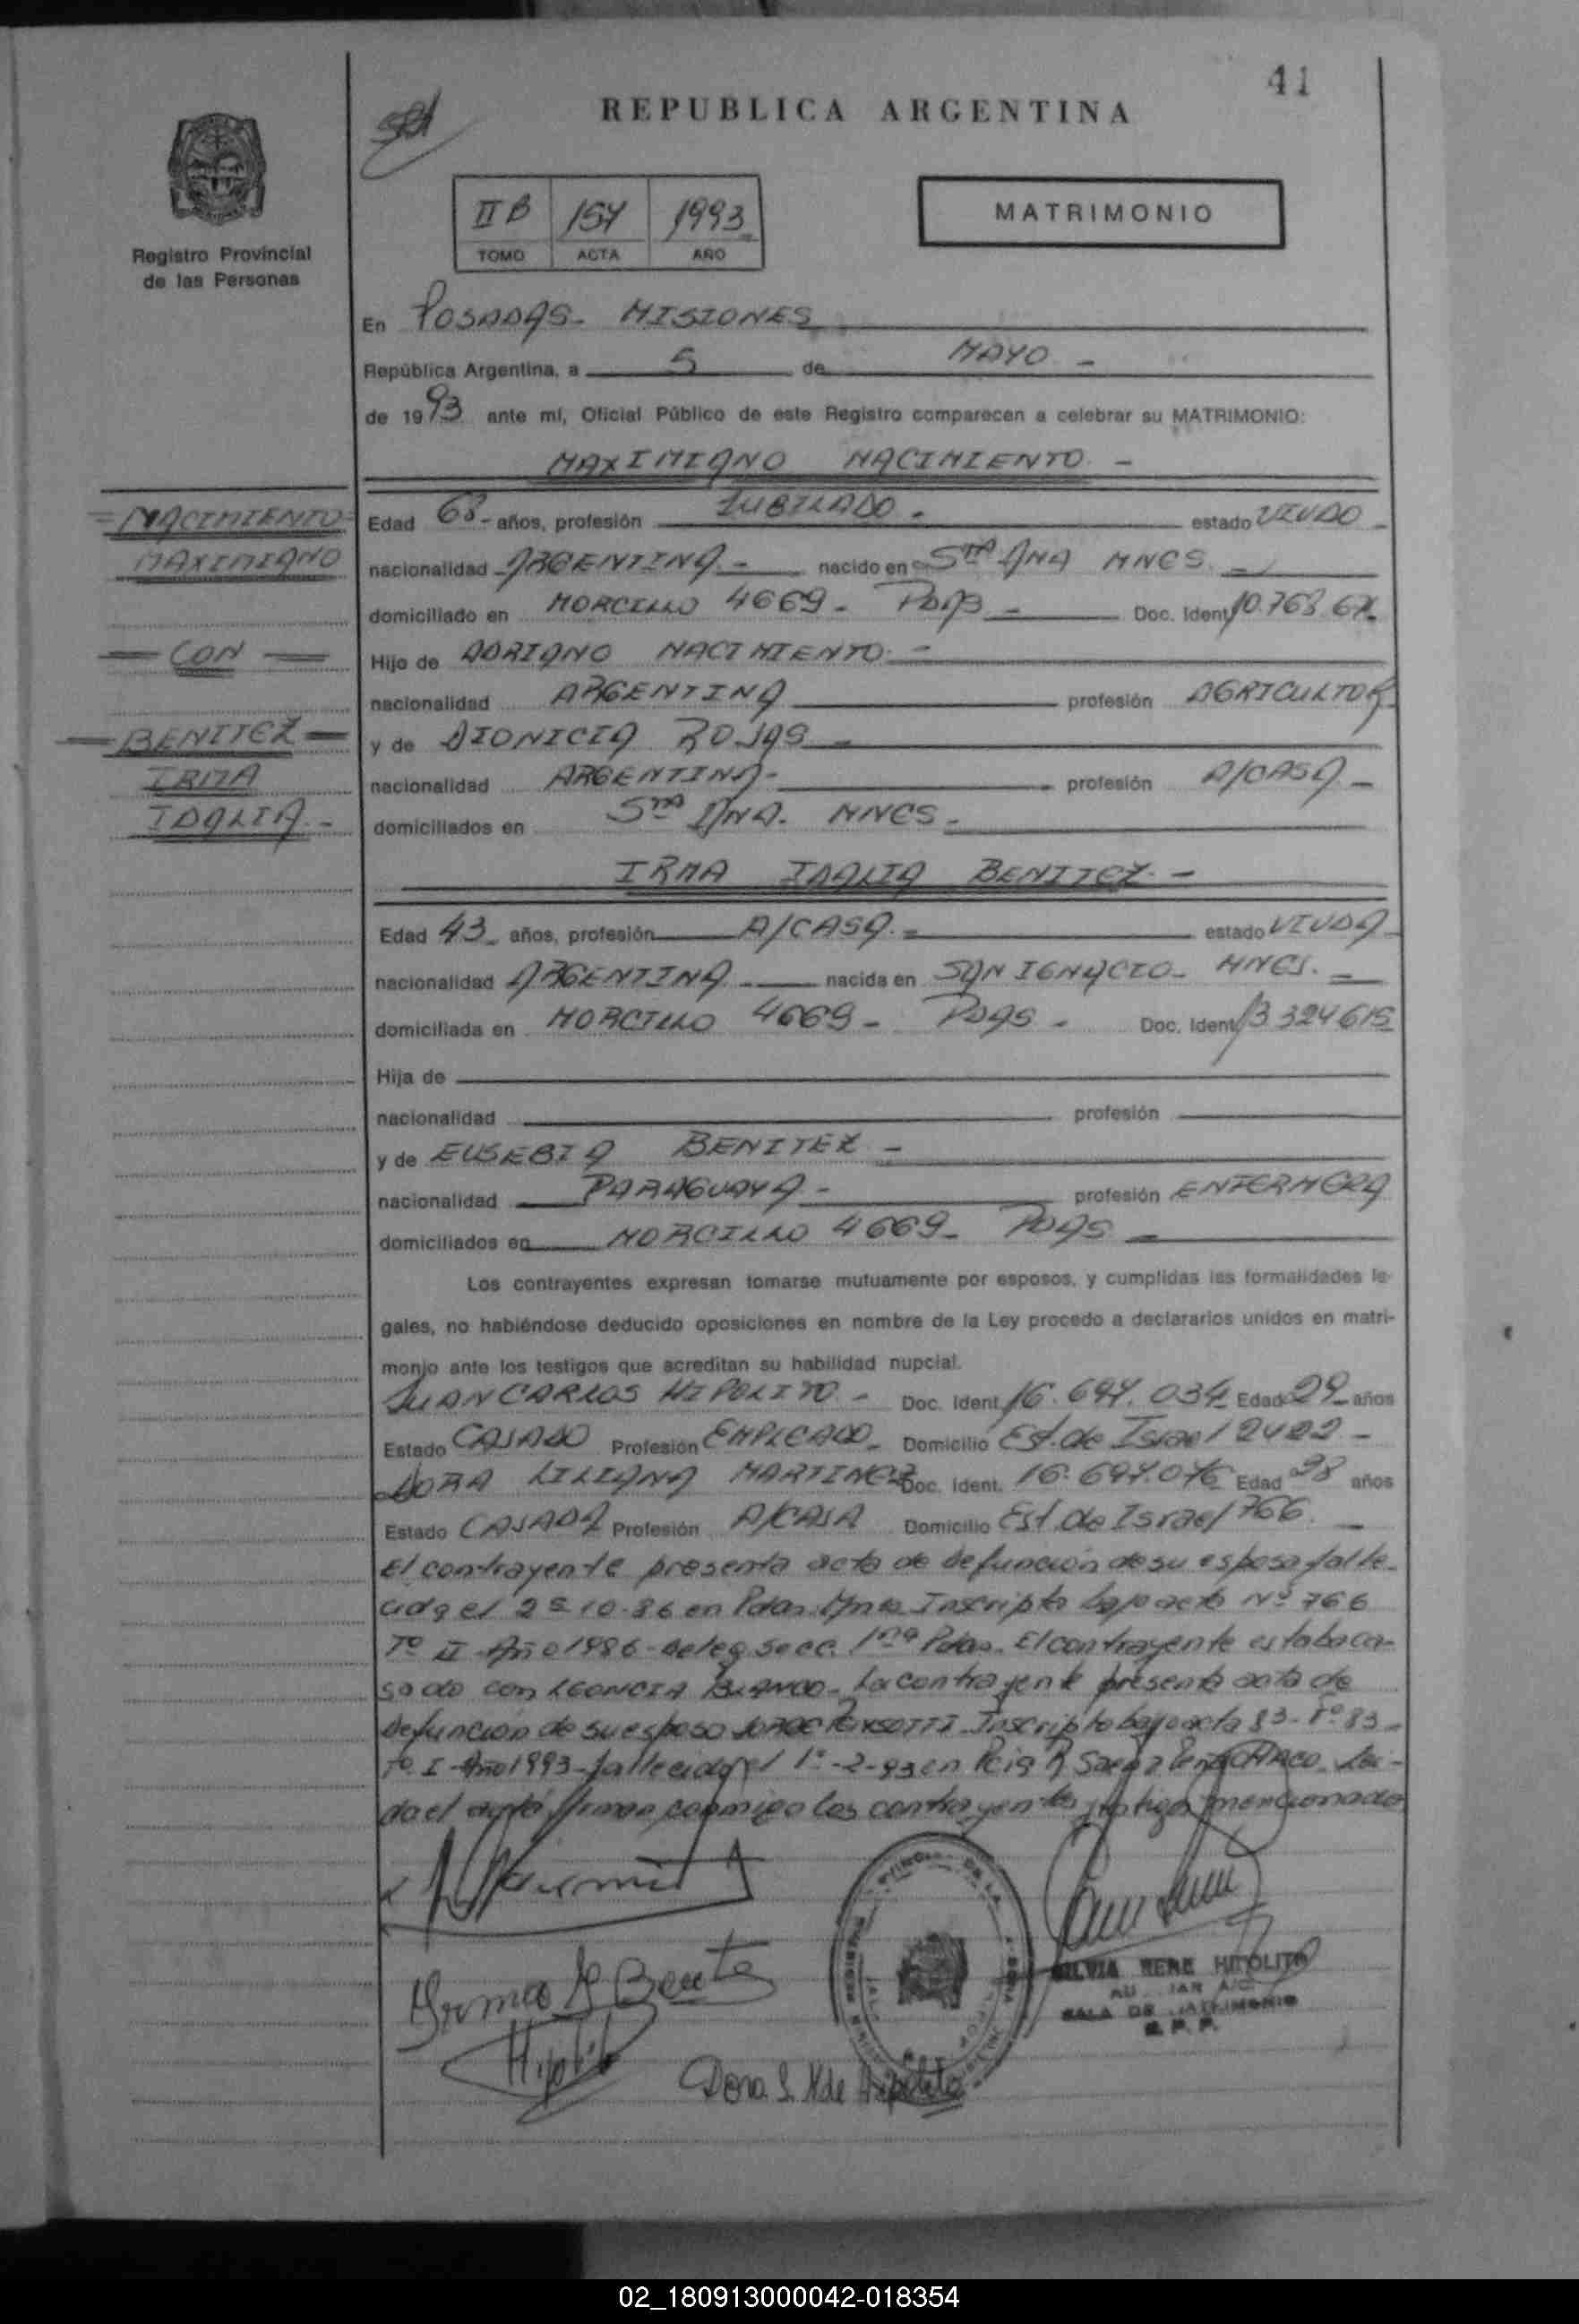 41
REPUBLICA ARGENTINA
Registro Provincial
de las Personas
II B 154 1993
TOMO ACTA AÑO
MATRIMONIO
En POSADAS- MISIONES
República Argentina, a 5 de MAYO -
de 1993 ante mí, Oficial Público de este Registro comparecen a celebrar su MATRIMONIO:
MAXIMIANO NACIMIENTO. -
NACIMIENTO
MAXIMIANO
CON
BENITEZ
IRMA
IDALIA. -
Edad 68- años, profesión JUBILADO. estado VIUDO -
nacionalidad ARGENTINA. - nacido en STA ANA MNES. -
domiciliado en MORCILLO 4669- PDAS - Doc. Ident.
Hijo de ADRIANO NACIMIENTO. -
nacionalidad ARGENTINA profesión AGRICULTOR
y de DIONICIA ROJAS -
nacionalidad ARGENTINA- profesión A/CASA. -
domiciliados en STA ANA. MNES -
IRMA IDALIA BENITEZ. -
Edad 43- años, profesión A/CASA. - estado VIUDA
nacionalidad ARGENTINA. - nacida en SAN IGNACIO- MNES. -
domiciliada en MORCILLO 4669- PDAS - Doc. Ident. 13324615
Hija de
nacionalidad profesión
y de EUSEBIA BENITEZ -
nacionalidad PARAGUAYA - profesión ENFERMERA
domiciliados en MORCILLO 4669- PDAS -
Los contrayentes expresan tomarse mutuamente por esposos, y cumplidas las formalidades le-
gales, no habiéndose deducido oposiciones en nombre de la Ley procedo a declararlos unidos en matri-
monio ante los testigos que acreditan su habilidad nupcial.
JUAN CARLOS HIPOLITO - Doc. Ident. 16.694.034 Edad 29 años
Estado CASADO Profesión EMPLEADO- Domicilio Est. de Israel 2422 -
DORA LILIANA MARTINEZ Doc. Ident. 16.694.076 Edad 28 años
Estado CASADA Profesión A/CASA Domicilio Est. de Israel 766. -
El contrayente presenta acta de defunción de su esposa falle-
cida el 10-86 en Pdas. Mnes. Inscripto bajo acta Nº 766
Tº II-Año 1986-Deleg. Secc. 1ra Pdas. El contrayente estaba ca-
sado con LEONCIA BLANCO- La contrayente presenta acta de
defunción de su esposo JORGE Inscripto bajo acta 83- Fº 83-
Tº I-Año 1993-fallecido el 1º-2-93 en Pcia R. Saenz Peña CHACO. Lei-
da el acta, firman conmigo los contrayentes y testigos mencionados
Irma I Benitez
Hipolito
Dora L. M de Hipolito
SILVIA RENE HIPOLITO
SALA DE MATRIMONIO
R. P. P.
02_180913000042-018354